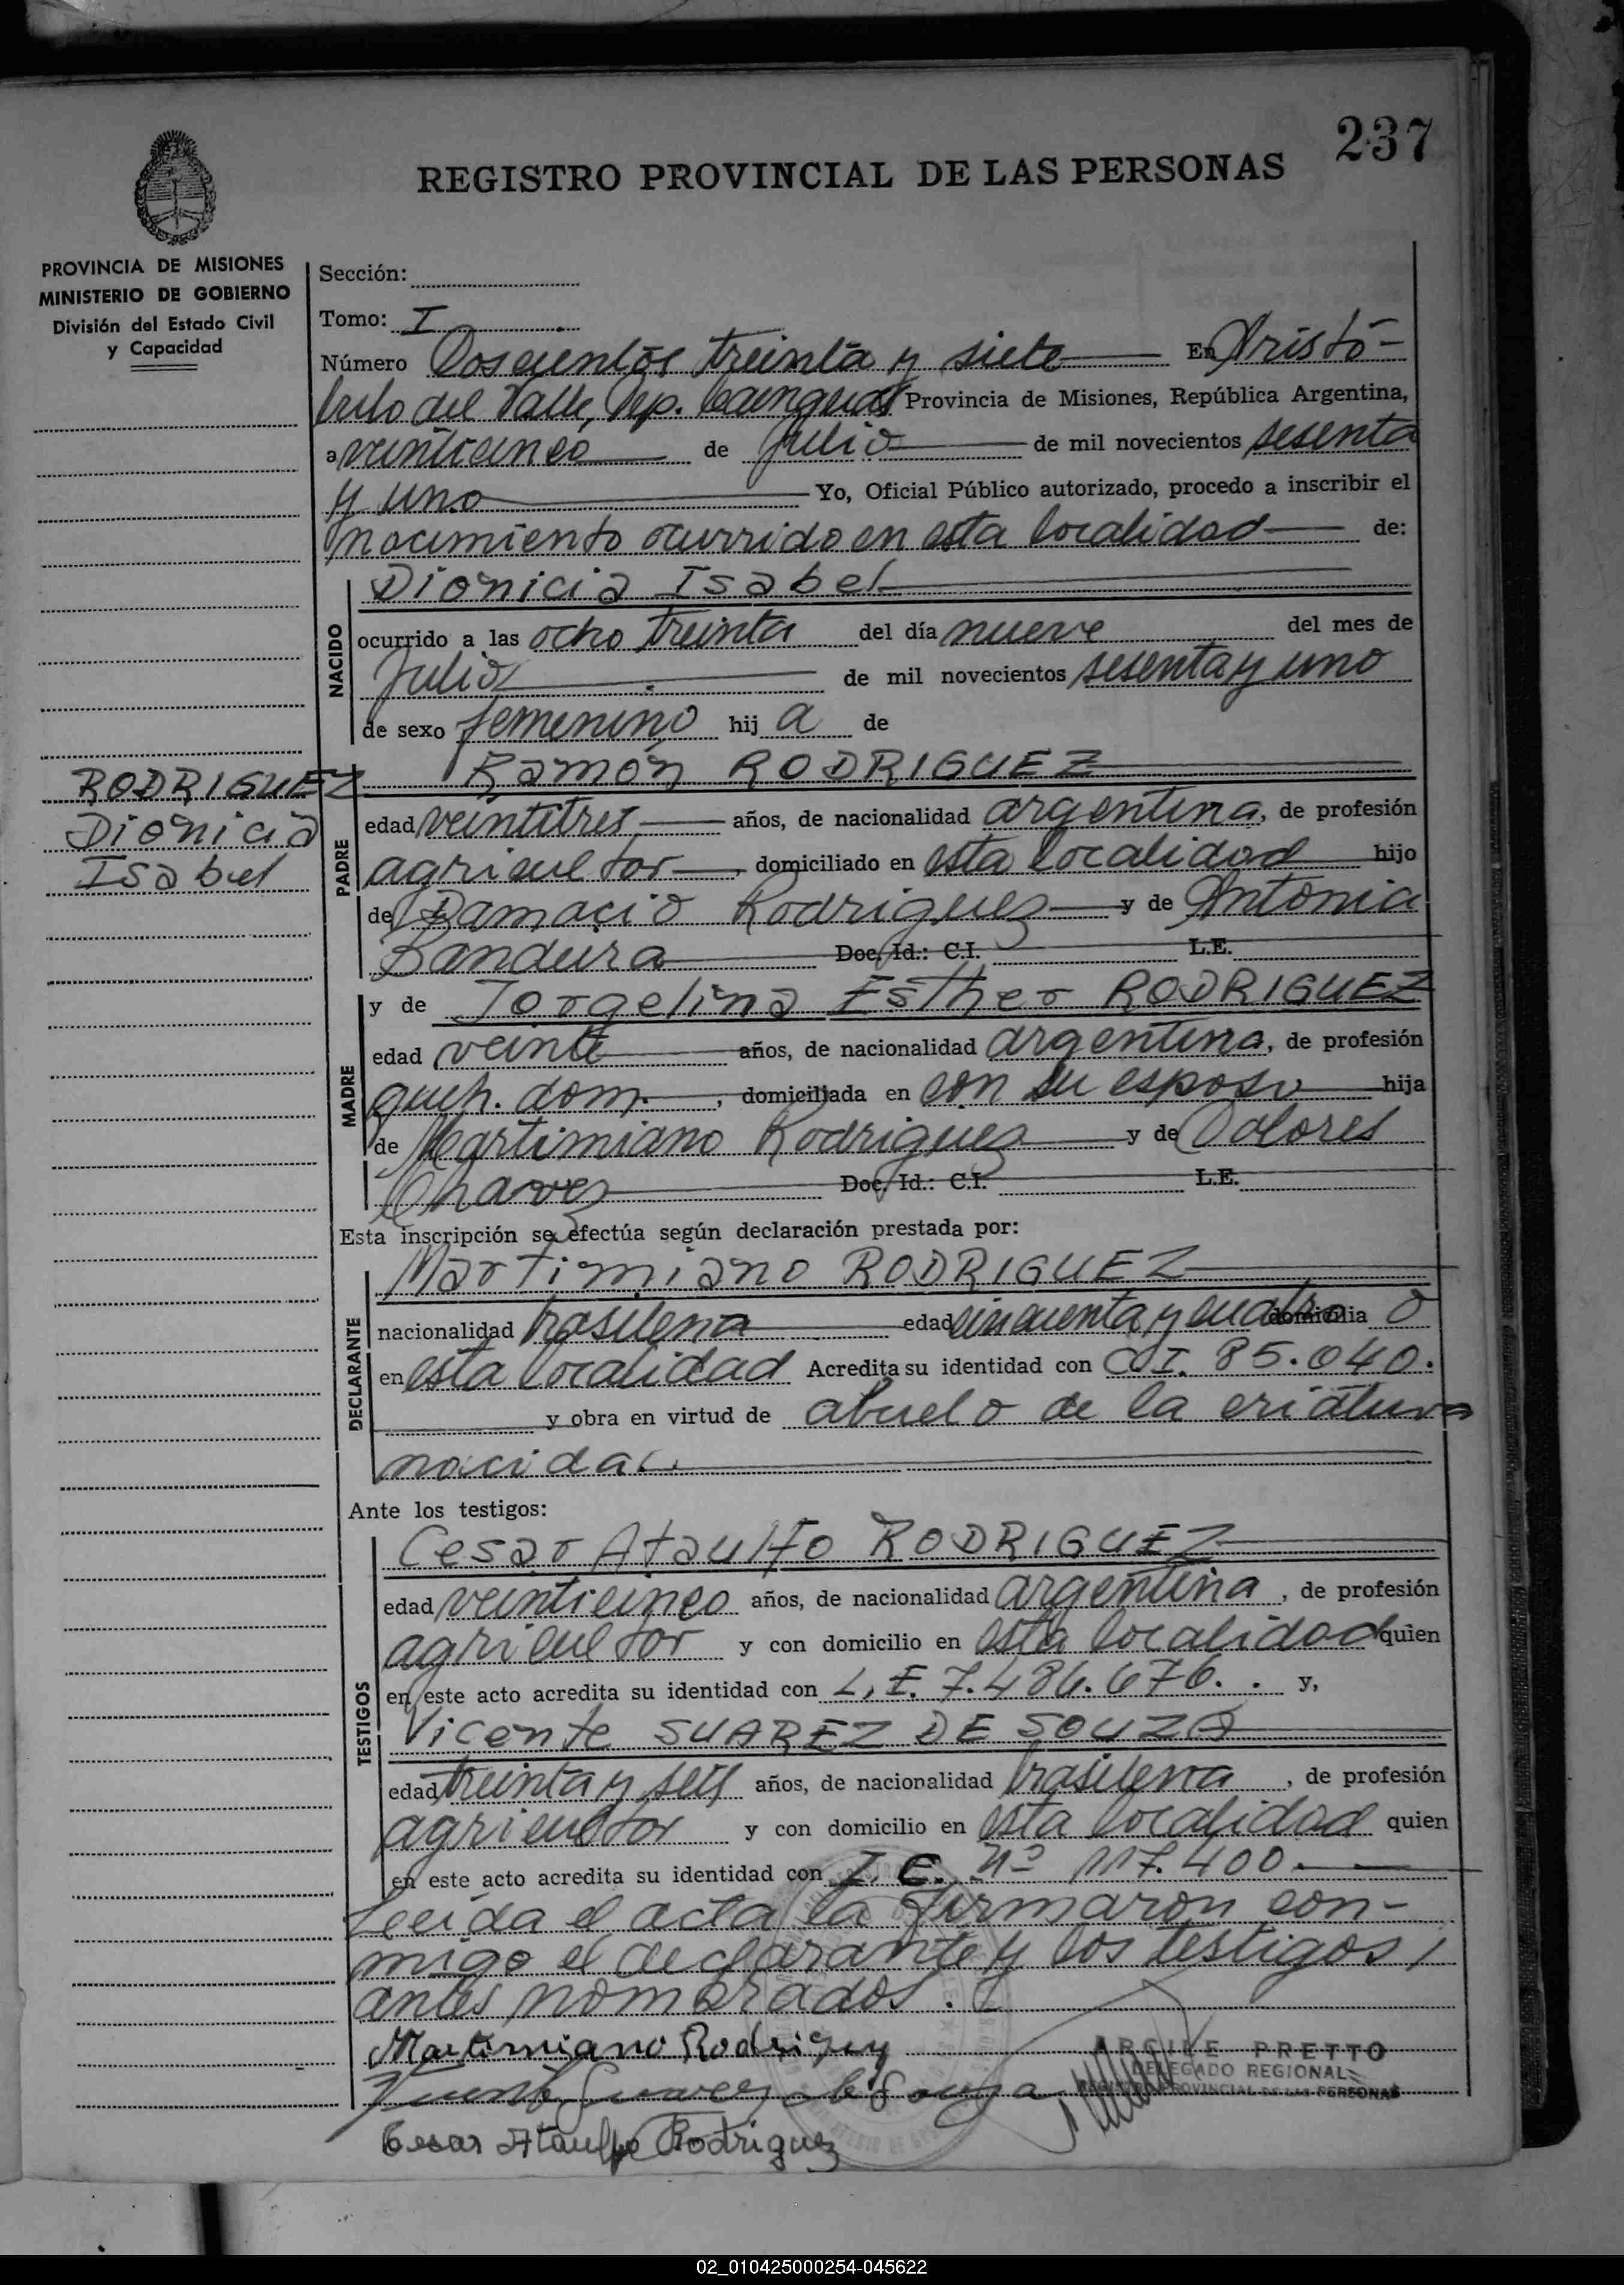 237
REGISTRO PROVINCIAL DE LAS PERSONAS
PROVINCIA DE MISIONES
MINISTERIO DE GOBIERNO
División del Estado Civil
y Capacidad
Sección:
Tomo: I
Número Doscientos treinta y siete En Aristó-
bulo del Valle, Dep. Cainguas Provincia de Misiones, República Argentina,
a veinticinco de Julio de mil novecientos sesenta
y uno Yo, Oficial Público autorizado, procedo a inscribir el
nacimiento ocurrido en esta localidad de:
NACIDO
Dionicia Isabel
ocurrido a las ocho treinta del día nueve del mes de
Julio de mil novecientos sesenta y uno
de sexo femenino hij a de
RODRIGUEZ
Dionicia
Isabel
PADRE
Ramón RODRIGUEZ
edad veintitres años, de nacionalidad argentina, de profesión
agricultor, domiciliado en esta localidad hijo
de Damacio Rodriguez y de Antonia
Bandura Doc. Id.: C.I. L.E.
MADRE
y de Jorgelina Esther RODRIGUEZ
edad veinte años, de nacionalidad argentina, de profesión
queh. dom., domiciliada en con su esposo hija
de Martimiano Rodriguez y de Dolores
Chavez Doc. Id.: C.I. L.E.
Esta inscripción se efectúa según declaración prestada por:
DECLARANTE
Martimiano RODRIGUEZ
nacionalidad brasilena edad cincuenta y cuatro domicilia o
en esta localidad Acredita su identidad con C.I. 85.040.
y obra en virtud de abuelo de la criatura
nacida.
Ante los testigos:
TESTIGOS
Cesar Ataulfo RODRIGUEZ
edad veinticinco años, de nacionalidad argentina, de profesión
agricultor y con domicilio en esta localidad quien
en este acto acredita su identidad con L.E. 7.486.676. y,
Vicente SUAREZ DE SOUZA
edad treinta y seis años, de nacionalidad brasilena, de profesión
agricultor y con domicilio en esta localidad quien
en este acto acredita su identidad con I.C. nº 117.400.
Leeida el acta la firmaron con-
migo el declarante y los testigos
antes nombrados.
Martimiano Rodriguez
Vicente Suarez de Souza
ARGILE PRETTO
DELEGADO REGIONAL
REGISTRO PROVINCIAL DE LAS PERSONAS
Cesar Ataulfo Rodriguez
02_010425000254-045622